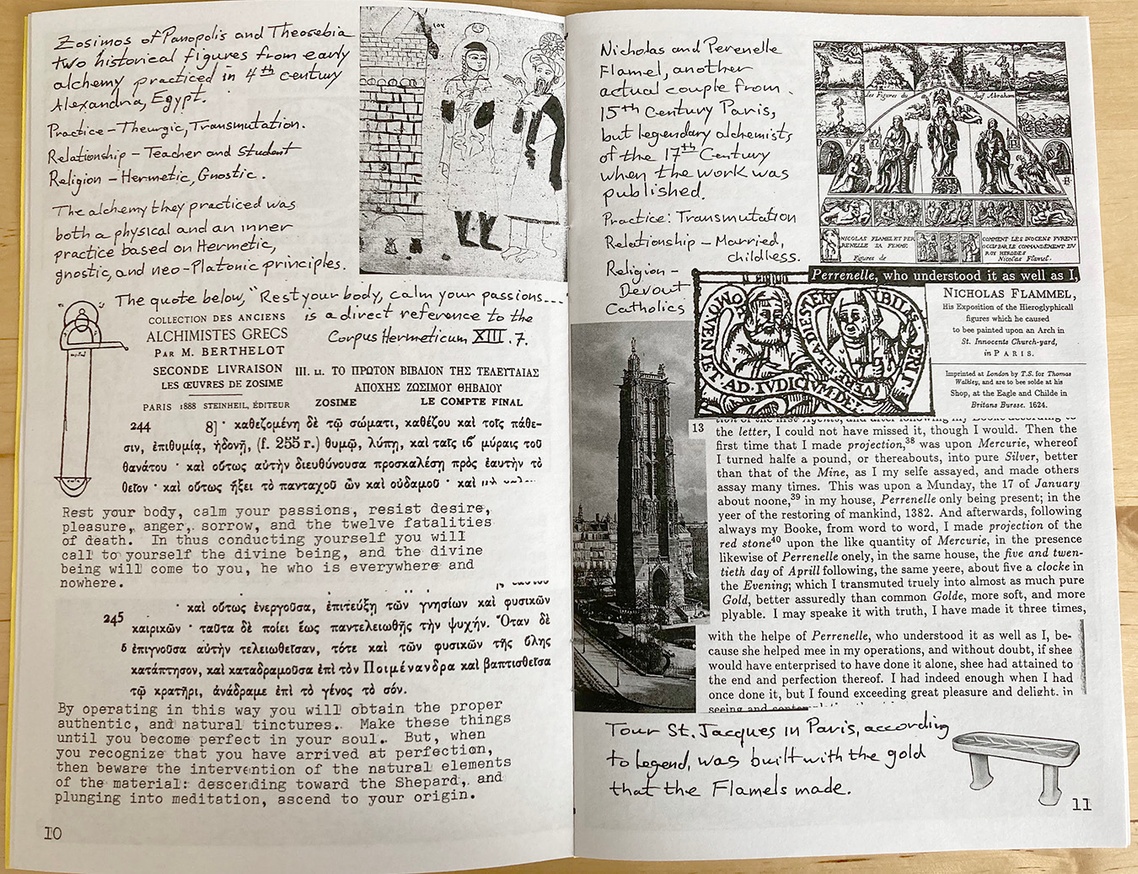 Zosimos of Panopolis and Theosebia
two historical figures from early
alchemy practiced in 4th century
Alexandria, Egypt.
Practice – Theurgic, Transmutation.
Relationship – Teacher and Student
Religion – Hermetic, Gnostic.
The alchemy they practiced was
both a physical and an inner
practice based on Hermetic,
gnostic, and neo-Platonic principles.
The quote below, "Rest your body, calm your passions...
is a direct reference to the
Corpus Hermeticum XIII. 7.
COLLECTION DES ANCIENS
ALCHIMISTES GRECS
PAR M. BERTHELOT
SECONDE LIVRAISON
LES ŒUVRES DE ZOSIME
PARIS 1888 STEINHEIL, ÉDITEUR
III. LI. ΤΟ ΠΡΩΤΟΝ ΒΙΒΛΙΟΝ ΤΗΣ ΤΕΛΕΥΤΑΙΑΣ
ΑΠΟΧΗΣ ΖΩΣΙΜΟΥ ΘΗΒΑΙΟΥ
ZOSIME LE COMPTE FINAL
244 8] · καθεζομένη δὲ τῷ σώματι, καθέζου καὶ τοῖς πάθε-
σιν, ἐπιθυμίᾳ, ἡδονῇ, (f. 255 r.) θυμῷ, λύπῃ, καὶ ταῖς ιβ´ μοίραις τοῦ
θανάτου · καὶ οὕτως αὐτὴν διευθύνουσα προσκαλέσῃ πρὸς ἑαυτὴν τὸ
θεῖον · καὶ οὕτως ἥξει τὸ πανταχοῦ ὢν καὶ οὐδαμοῦ · καὶ
Rest your body, calm your passions, resist desire,
pleasure, anger, sorrow, and the twelve fatalities
of death. In thus conducting yourself you will
call to yourself the divine being, and the divine
being will come to you, he who is everywhere and
nowhere.
245 · καὶ οὕτως ἐνεργοῦσα, ἐπιτεύξῃ τῶν γνησίων καὶ φυσικῶν
καιρικῶν · ταῦτα δὲ ποίει ἕως παντελειωθῇς τὴν ψυχήν. Ὅταν δὲ
5 ἐπιγνοῦσα αὐτὴν τελειωθεῖσαν, τότε καὶ τῶν φυσικῶν τῆς ὕλης
κατάπτησον, καὶ καταδραμοῦσα ἐπὶ τὸν Ποιμένανδρα καὶ βαπτισθεῖσα
τῷ κρατῆρι, ἀνάδραμε ἐπὶ τὸ γένος τὸ σόν.
By operating in this way you will obtain the proper
authentic, and natural tinctures. Make these things
until you become perfect in your soul. But, when
you recognize that you have arrived at perfection,
then beware the intervention of the natural elements
of the material: descending toward the Shepard, and
plunging into meditation, ascend to your origin.
10
Nicholas and Perenelle
Flamel, another
actual couple from
15th Century Paris,
but legendary alchemists
of the 17th Century
when the work was
published.
Practice: Transmutation
Relationship – Married,
childless.
Religion –
Devout
Catholics
les Figures de Juif Abraham
NICOLAS FLAMEL ET PER
RENELLE SA FEMME
Figures de
COMMENT LES INOCENS FVRENT
OCCIS PAR LE COMMANDEMENT DV
ROY HERODES
Nicolas Flamel.
Perrenelle, who understood it as well as I,
NICHOLAS FLAMMEL,
His Exposition of the Hieroglyphicall
figures which he caused
to bee painted upon an Arch in
St. Innocents Church-yard,
in PARIS.
Imprinted at London by T.S. for Thomas
Walkley, and are to bee solde at his
Shop, at the Eagle and Childe in
Britans Bursse. 1624.
13
the letter, I could not have missed it, though I would. Then the
first time that I made projection,38 was upon Mercurie, whereof
I turned halfe a pound, or thereabouts, into pure Silver, better
than that of the Mine, as I my selfe assayed, and made others
assay many times. This was upon a Munday, the 17 of January
about noone,39 in my house, Perrenelle only being present; in the
yeer of the restoring of mankind, 1382. And afterwards, following
always my Booke, from word to word, I made projection of the
red stone40 upon the like quantity of Mercurie, in the presence
likewise of Perrenelle onely, in the same house, the five and twen-
tieth day of Aprill following, the same yeere, about five a clocke in
the Evening; which I transmuted truely into almost as much pure
Gold, better assuredly than common Golde, more soft, and more
plyable. I may speake it with truth, I have made it three times,
with the helpe of Perrenelle, who understood it as well as I, be-
cause she helped mee in my operations, and without doubt, if shee
would have enterprised to have done it alone, shee had attained to
the end and perfection thereof. I had indeed enough when I had
once done it, but I found exceeding great pleasure and delight. in
Tour St. Jacques in Paris, according
to legend, was built with the gold
that the Flamels made.
11